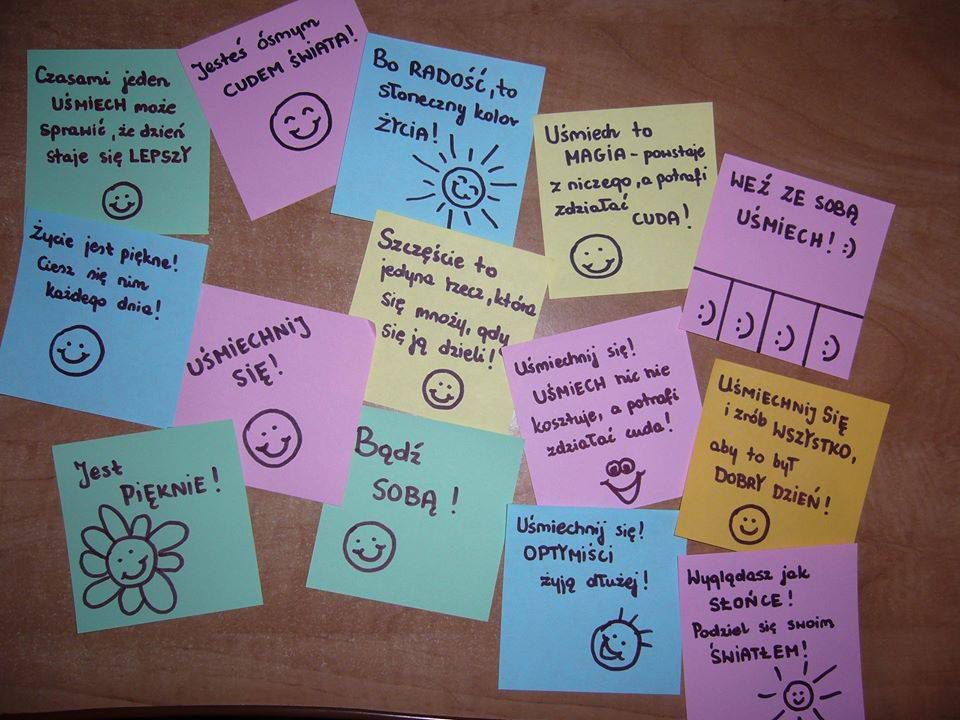 Czasami jeden
UŚMIECH może
sprawić, że dzień
staje się LEPSZY
Jesteś ósmym
CUDEM ŚWIATA!
Bo RADOŚĆ, to
słoneczny kolor
ŻYCIA!
Uśmiech to
MAGIA - powstaje
z niczego, a potrafi
zdziałać
CUDA!
WEŹ ZE SOBĄ
UŚMIECH! :)
:)
:)
:)
:)
Życie jest piękne!
Ciesz się nim
każdego dnia!
UŚMIECHNIJ
SIĘ!
Szczęście to
jedyna rzecz, która
się mnoży, gdy
się ją dzieli!
Uśmiechnij się!
UŚMIECH nic nie
kosztuje, a potrafi
zdziałać cuda!
UŚMIECHNIJ SIĘ
i zrób WSZYSTKO,
aby to był
DOBRY DZIEŃ!
Jest
PIĘKNIE!
Bądź
SOBĄ!
Uśmiechnij się!
OPTYMIŚCI
żyją dłużej!
Wyglądasz jak
SŁOŃCE!
Podziel się swoim
ŚWIATŁEM!